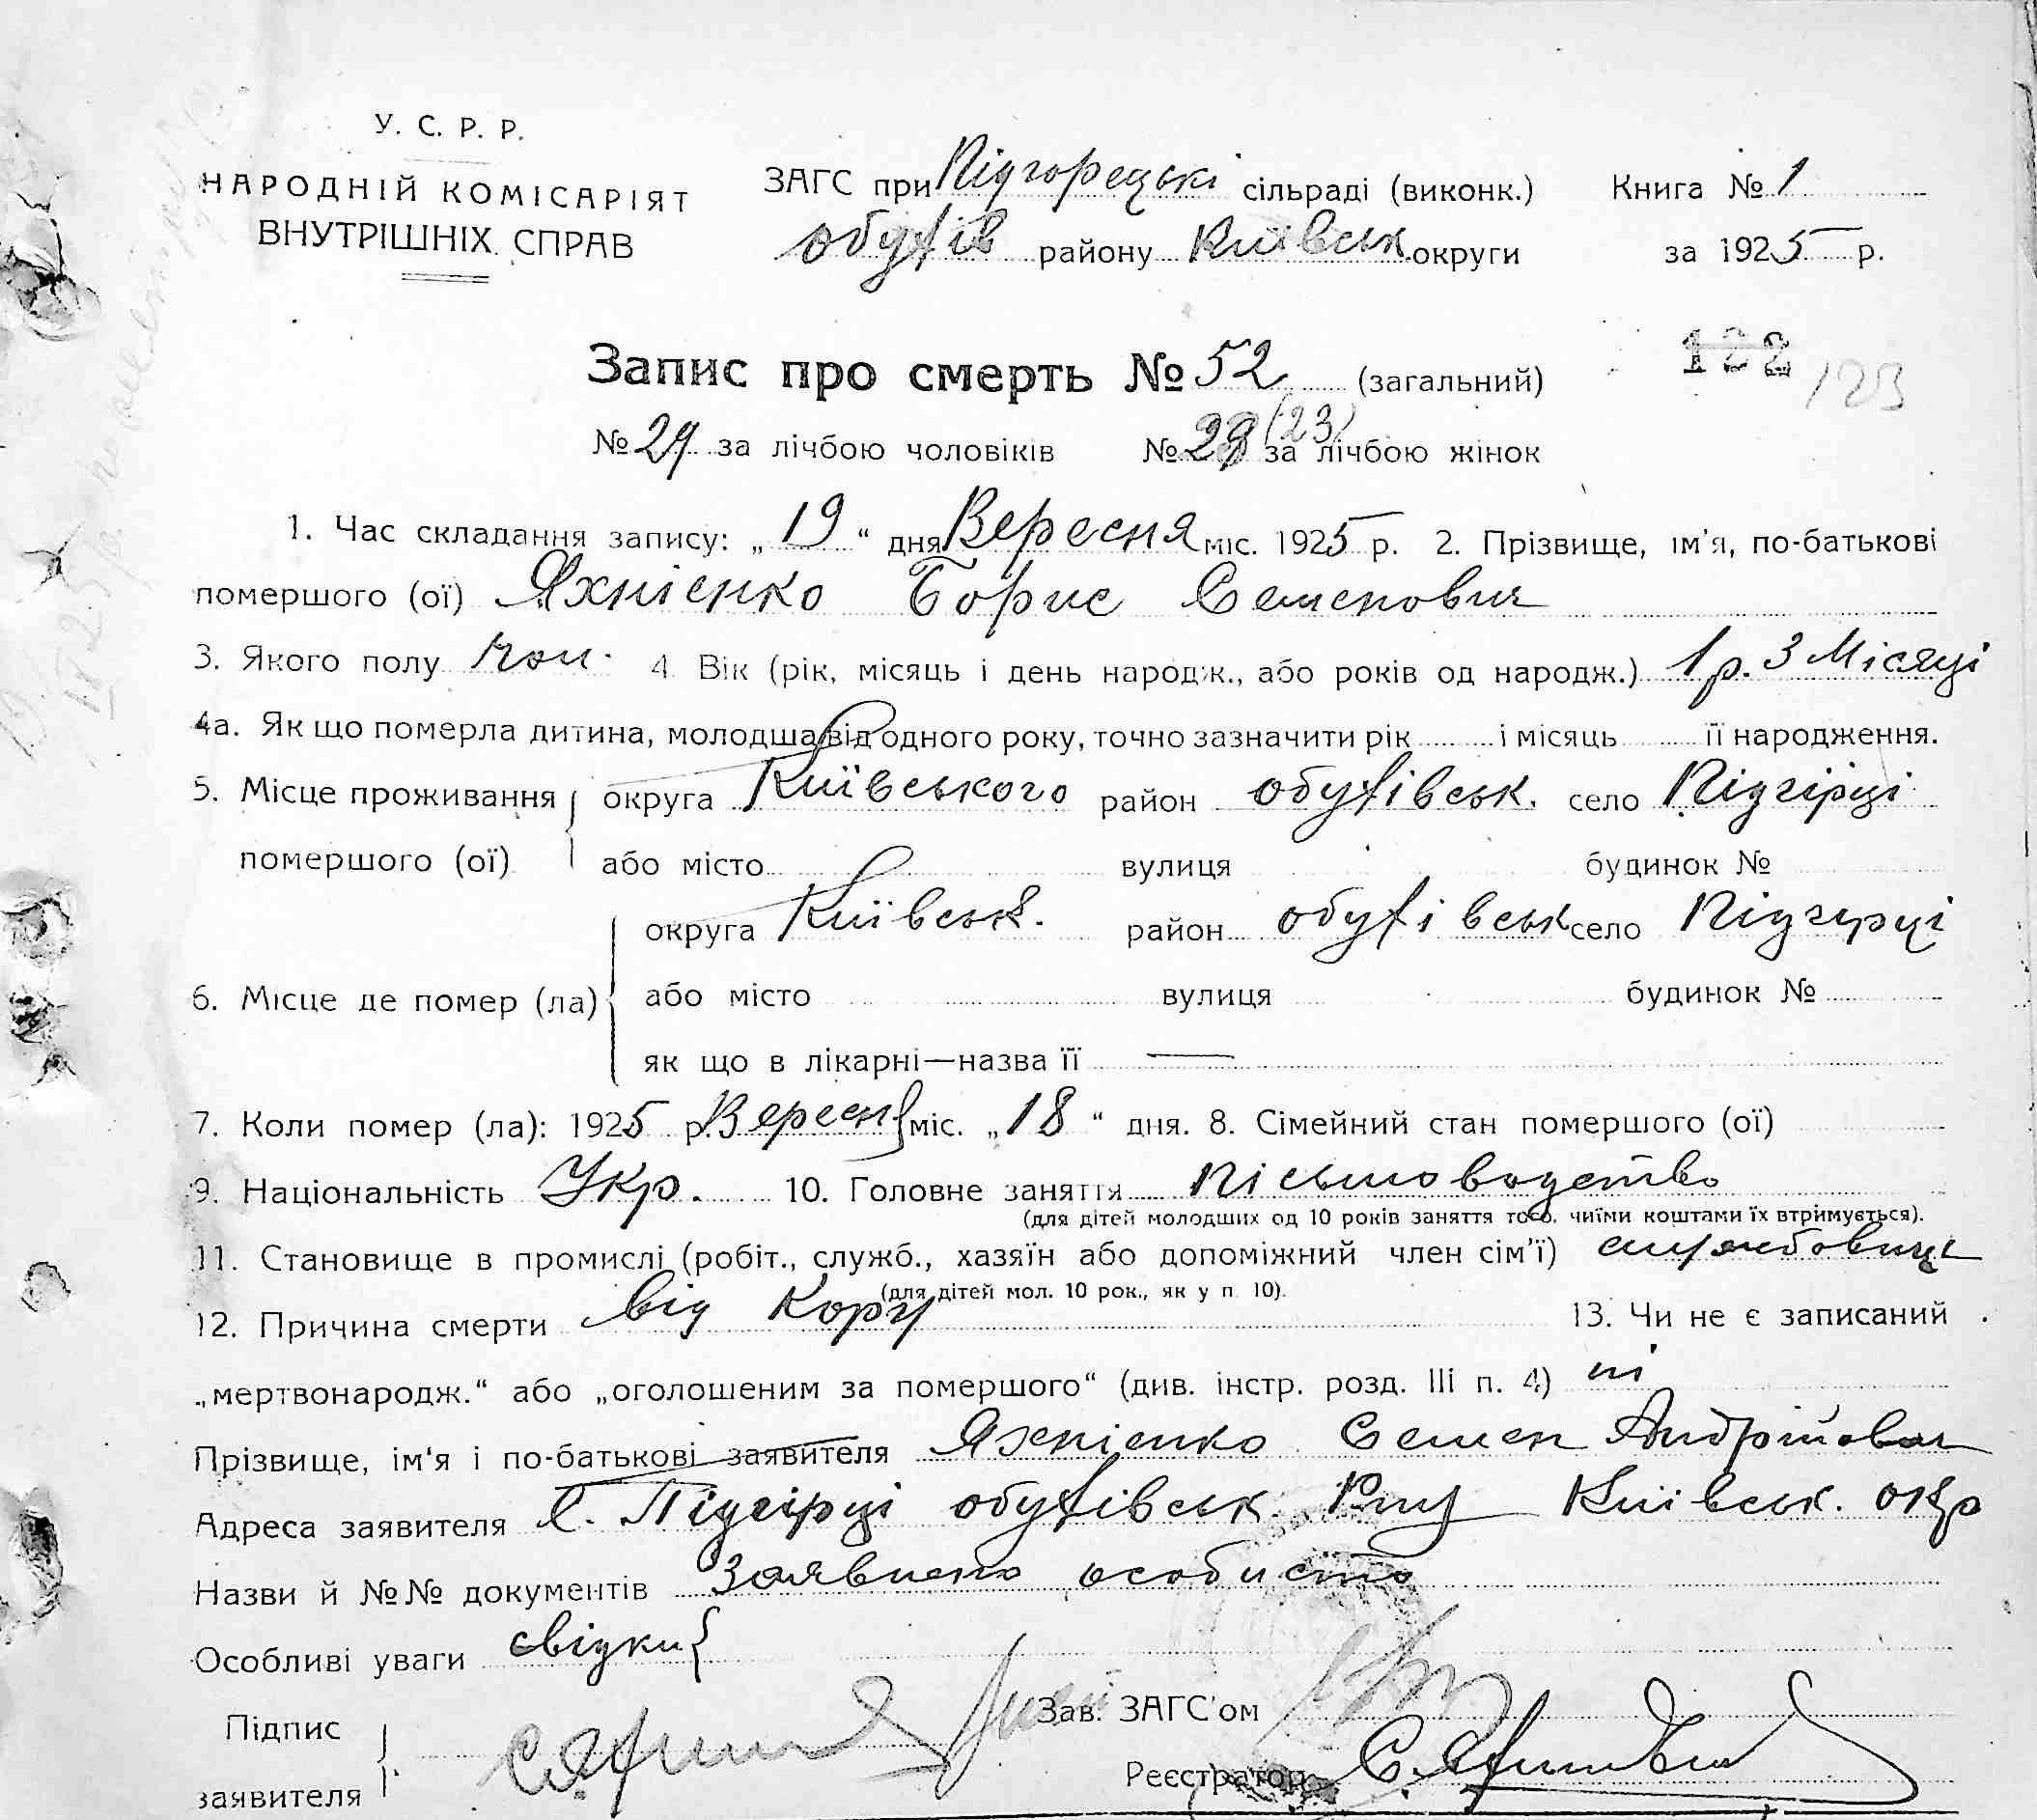 У. С. Р. Р.
НАРОДНІЙ КОМІСАРІЯТ
ВНУТРІШНІХ СПРАВ
ЗАГС при Підгорецькі сільраді (виконк.) Книга № 1
обухів району Київськ. округи за 1925 р.
Запис про смерть № 52 (загальний) 122 123
№ 29 за лічбою чоловіків № 23 (23) за лічбою жінок
1. Час складання запису: „19“ дня Вересня міс. 1925 р. 2. Прізвище, ім'я, по-батькові
помершого (ої) Яхнієнко Борис Семенович
3. Якого полу чол. 4. Вік (рік, місяць і день народж., або років од народж.) 1 р. 3 Місяці
4а. Як що померла дитина, молодша від одного року, точно зазначити рік і місяць її народження.
5. Місце проживання округа Київського район обухівськ. село Підгірці
помершого (ої) або місто вулиця будинок №
округа Київськ. район обухівськ село Підгурці
6. Місце де помер (ла) або місто вулиця будинок №
як що в лікарні—назва її —
7. Коли помер (ла): 1925 р. Вересня міс. „18“ дня. 8. Сімейний стан помершого (ої)
9. Національність Укр. 10. Головне заняття письмоводство
(для дітей молодших од 10 років заняття того, чиїми коштами їх втримується).
11. Становище в промислі (робіт., служб., хазяїн або допоміжний член сім'ї) службовиць
(для дітей мол. 10 рок., як у п. 10).
12. Причина смерти від Кору 13. Чи не є записаний
„мертвонародж.“ або „оголошеним за помершого“ (див. інстр. розд. III п. 4) ні
Прізвище, ім'я і по-батькові заявителя Яхнієнко Семен Андрійович
Адреса заявителя С. Підгірці обухівськ. Київськ. окр
Назви й №№ документів Заявлено особисто
Особливі уваги свідки {
Підпис
заявителя
Зав. ЗАГС'ом
Реєстратор